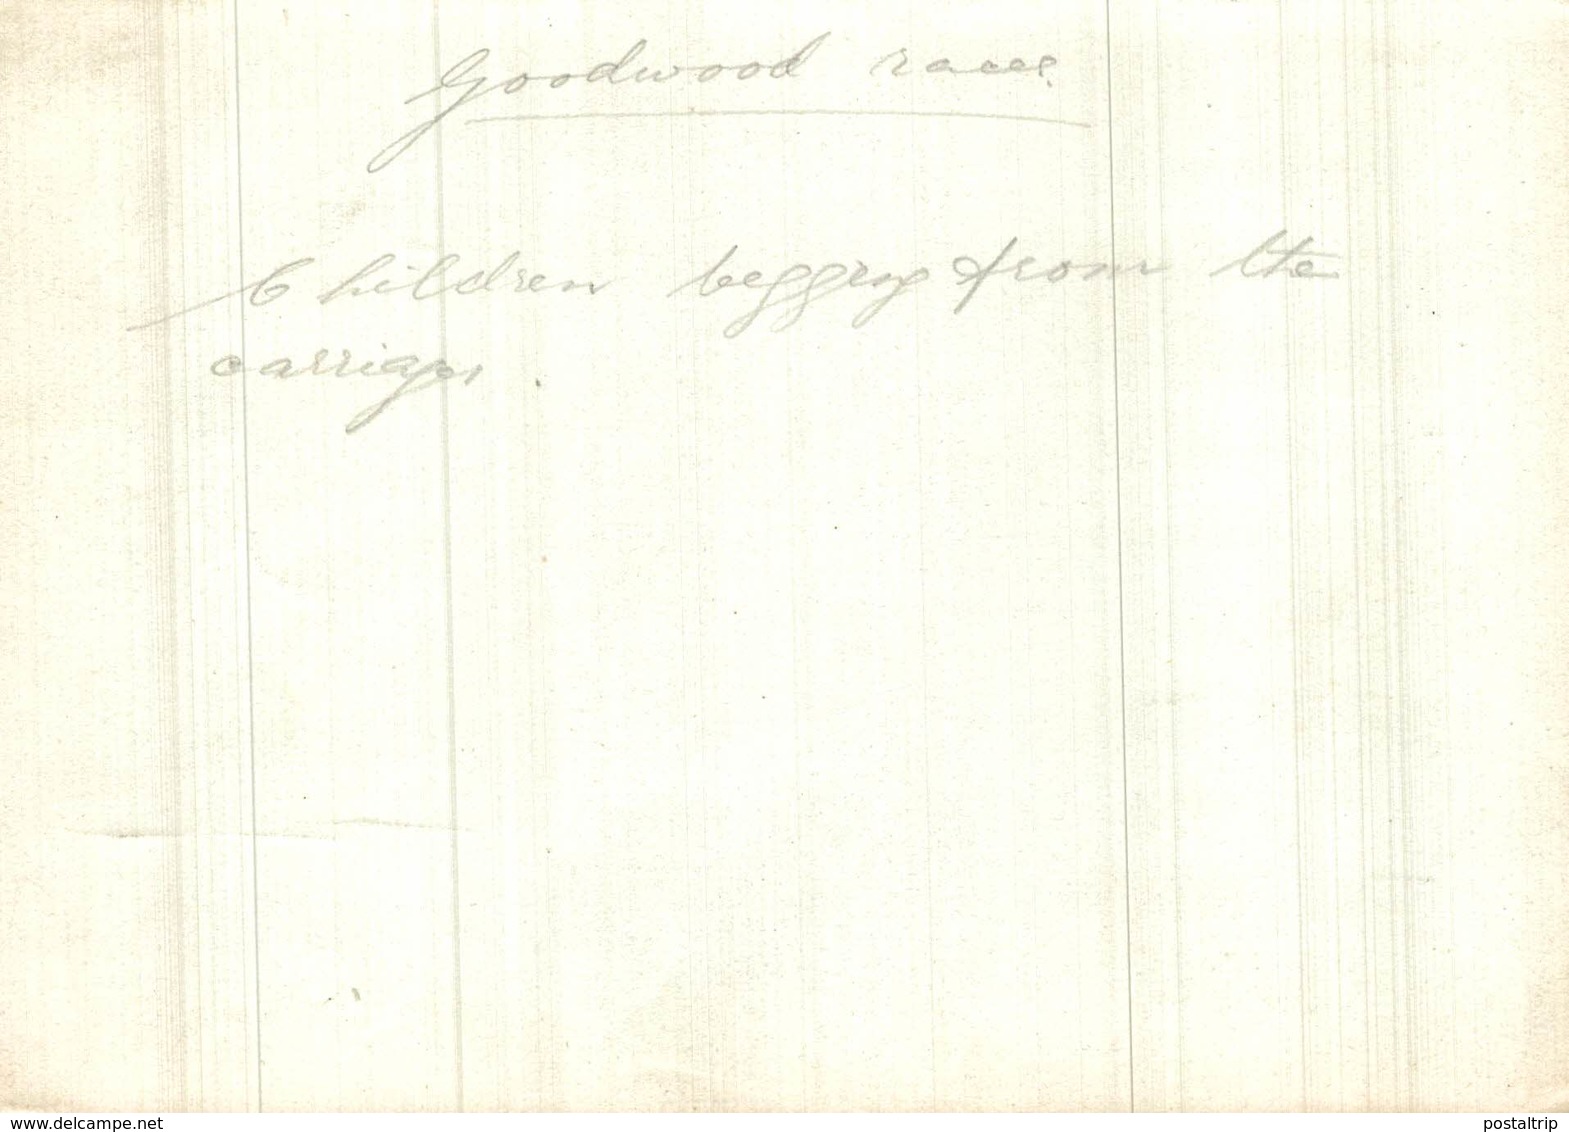 Goodwood races.
Children begging from the
carriages.
www.delcampe.net
postaltrip